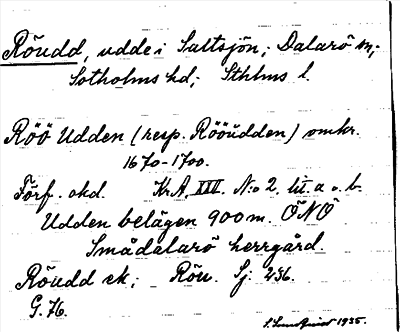 Röudd, udde i Saltsjön; Dalarö sn;
Sotholms hd; Sthlms l.
Röö Udden (resp. Rööudden) omkr.
1670-1700.
Förf. okd. Kr.A. XIII. N:o 2. litt. a o. b.
Udden belägen 900 m. ÖNÖ
Smådalarö herrgård.
Röudd ek; Röu. Sj. 256.
G. 76.
S. Lundqvist 1935.